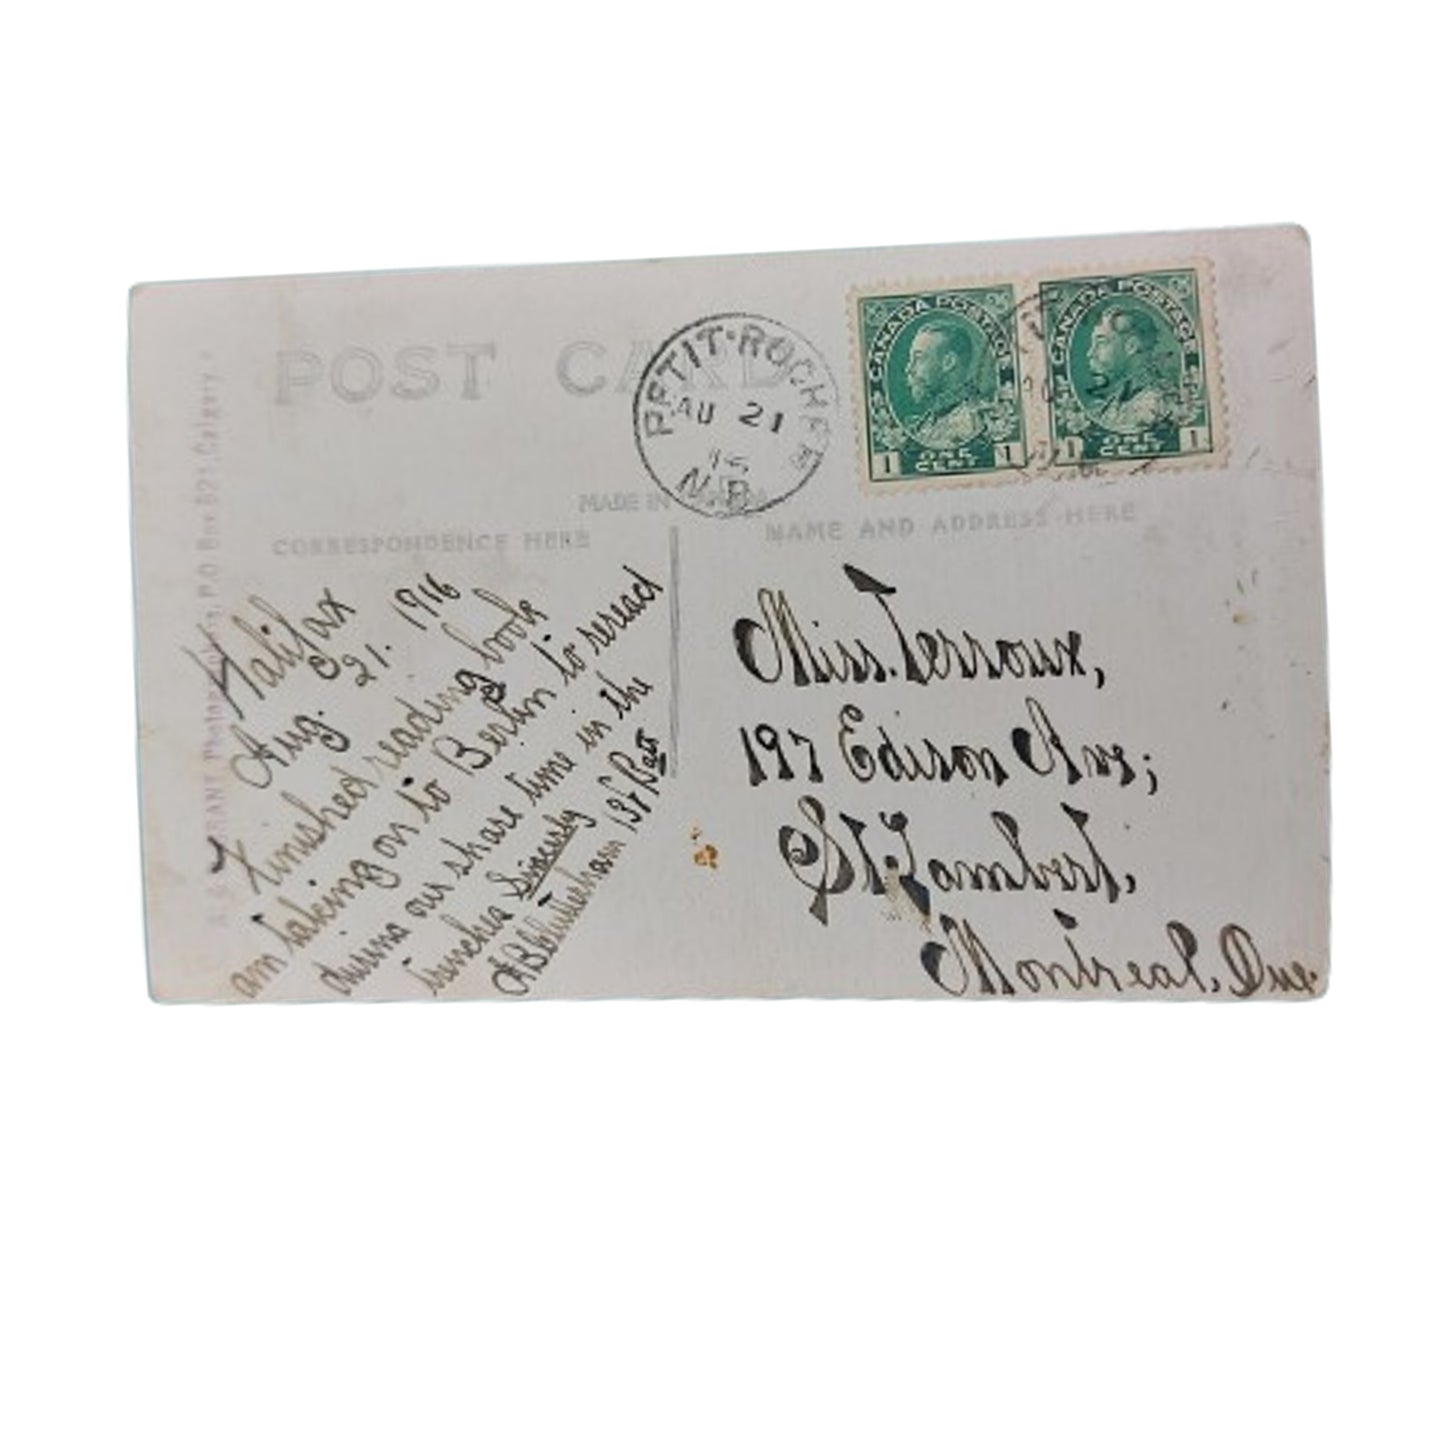 POST CARD
PETIT-ROCHER
AU 21
N.B.
CANADA POSTAGE
1 ONE CENT 1
CANADA POSTAGE
1 ONE CENT 1
MADE IN CANADA
CORRESPONDENCE HERE
NAME AND ADDRESS HERE
Halifax
Aug. 21. 1916
Finished reading book
am taking on to Berlin to reread
during our share time in the
trenches Sincerly
137 Batt
Miss. Terroux,
197 Edison Ave;
St. Lambert,
Montreal, Que.
P.O Box 821, Calgary